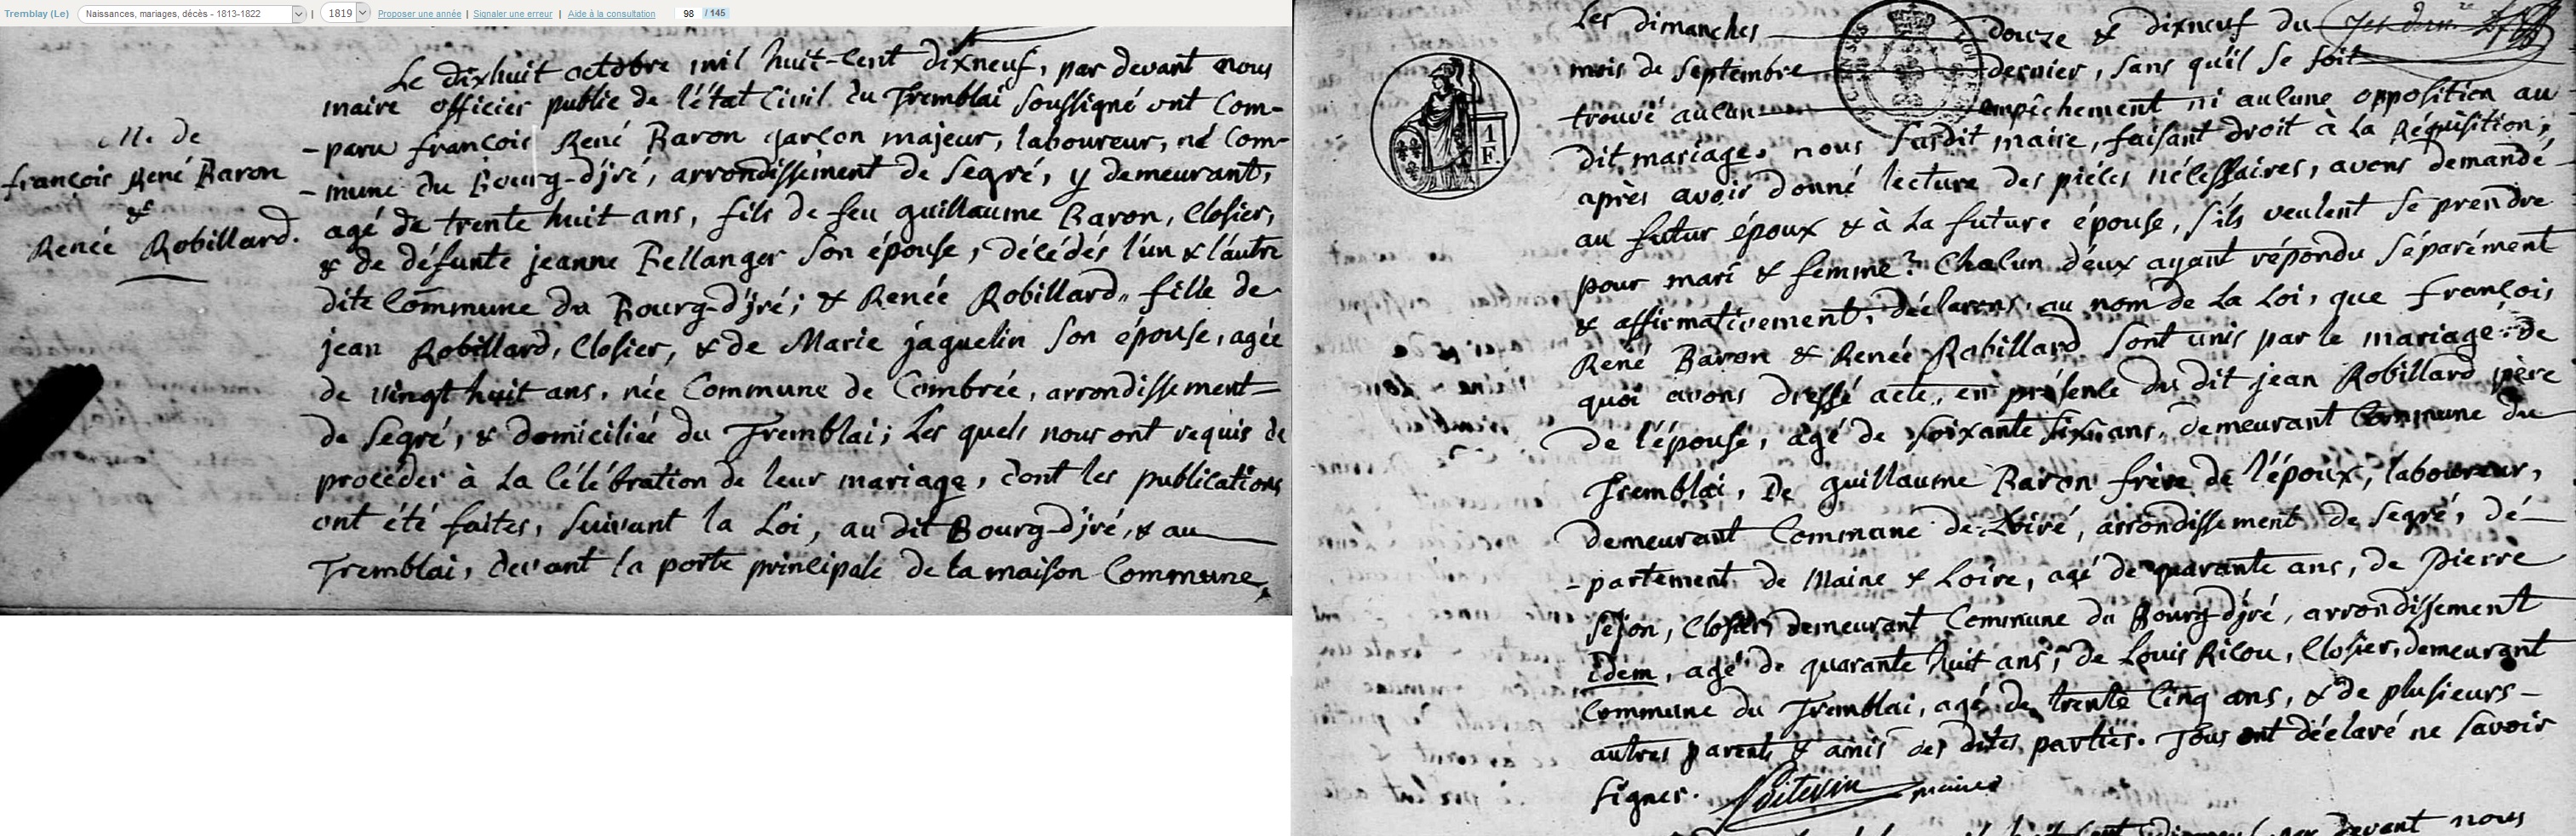 Tremblay (Le) Naissances, mariages, décès - 1813-1822 | 1819 Proposer une année | Signaler une erreur | Aide à la consultation 98 / 145
M. de
françois René Baron
&
Renée Robillard.
Le dixhuit octobre mil huit-cent dixneuf, par devant nous
maire officier public de l'état civil du Tremblai soussigné ont com-
-paru françois René Baron garçon majeur, laboureur, né com-
-mune du Bourg-d'jré, arrondissement de segré, y demeurant,
agé de trente huit ans, fils de feu guillaume Baron, closier,
& de défunte jeanne Bellanger son épouse, décédés l'un & l'autre
dite commune du Bourg-d'jré; & Renée Robillard, fille de
jean Robillard, closier, & de Marie jaquelin son épouse, agée
de vingt huit ans, née commune de Combrée, arrondissement
de segré, & domiciliée du Tremblai; Les quels nous ont requis de
procéder à la célébration de leur mariage, dont les publications
ont été faites, suivant la Loi, au dit Bourg-d'jré, & au
Tremblai, devant la porte principale de la maison commune,
Les dimanches douze & dixneuf du
mois de septembre dernier, sans qu'il se soit
trouvé aucun empêchement ni aucune opposition au
dit mariage. nous susdit maire, faisant droit à la Réquisition,
après avoir donné lecture des pièces nécessaires, avons demandé
au futur époux & à la future épouse, s'ils veulent se prendre
pour mari & femme? Chacun d'eux ayant répondu séparément
& affirmativement, déclarons, au nom de la Loi, que françois
René Baron & Renée Robillard sont unis par le mariage. De
quoi avons dressé acte, en présence du dit jean Robillard père
de l'épouse, agé de soixante six ans, demeurant commune du
Tremblai, De guillaume Baron frère de l'époux, laboureur,
demeurant commune de Loiré, arrondissement de segré, dé-
-partement de Maine & Loire, agé de quarante ans, de pierre
sejon, closier, demeurant commune du Bourg-d'jré, arrondissement
idem, agé de quarante huit ans, de Louis Ricou, closier, demeurant
commune du Tremblai, agé de trente cinq ans, & de plusieurs
autres parents & amis des dites parties. Tous ont déclaré ne savoir
signer. Poitevin maire
1
F.
devant nous